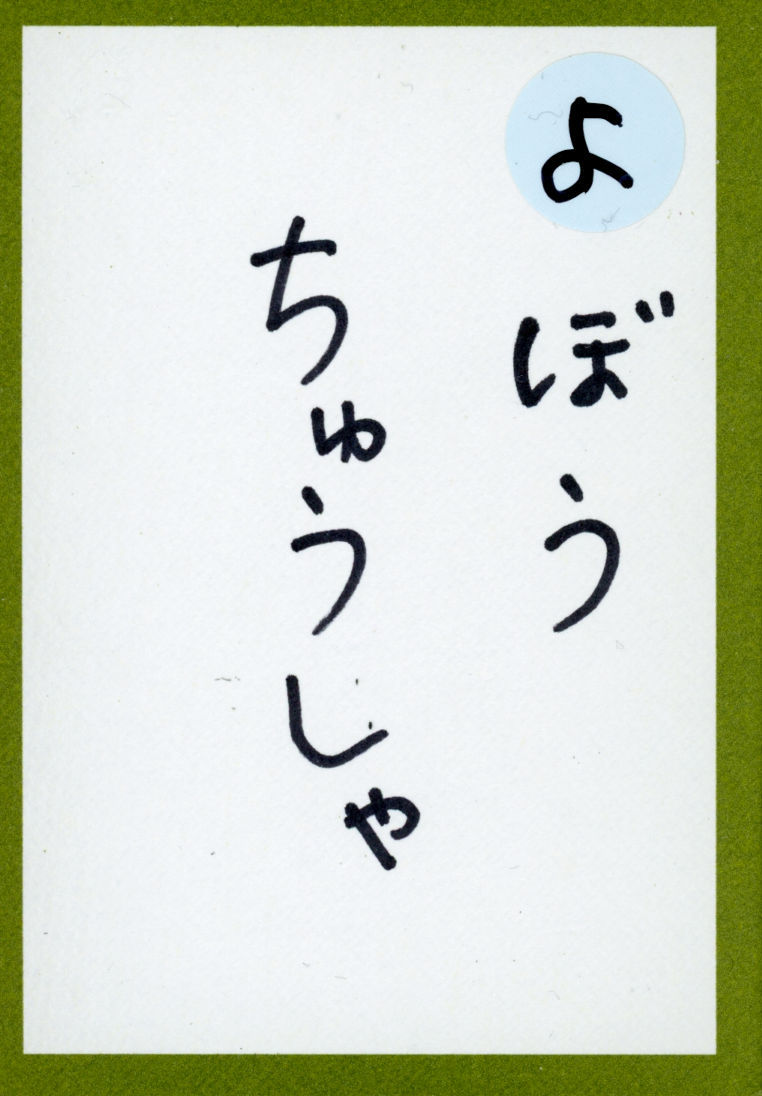 よぼう
ちゅうしゃ